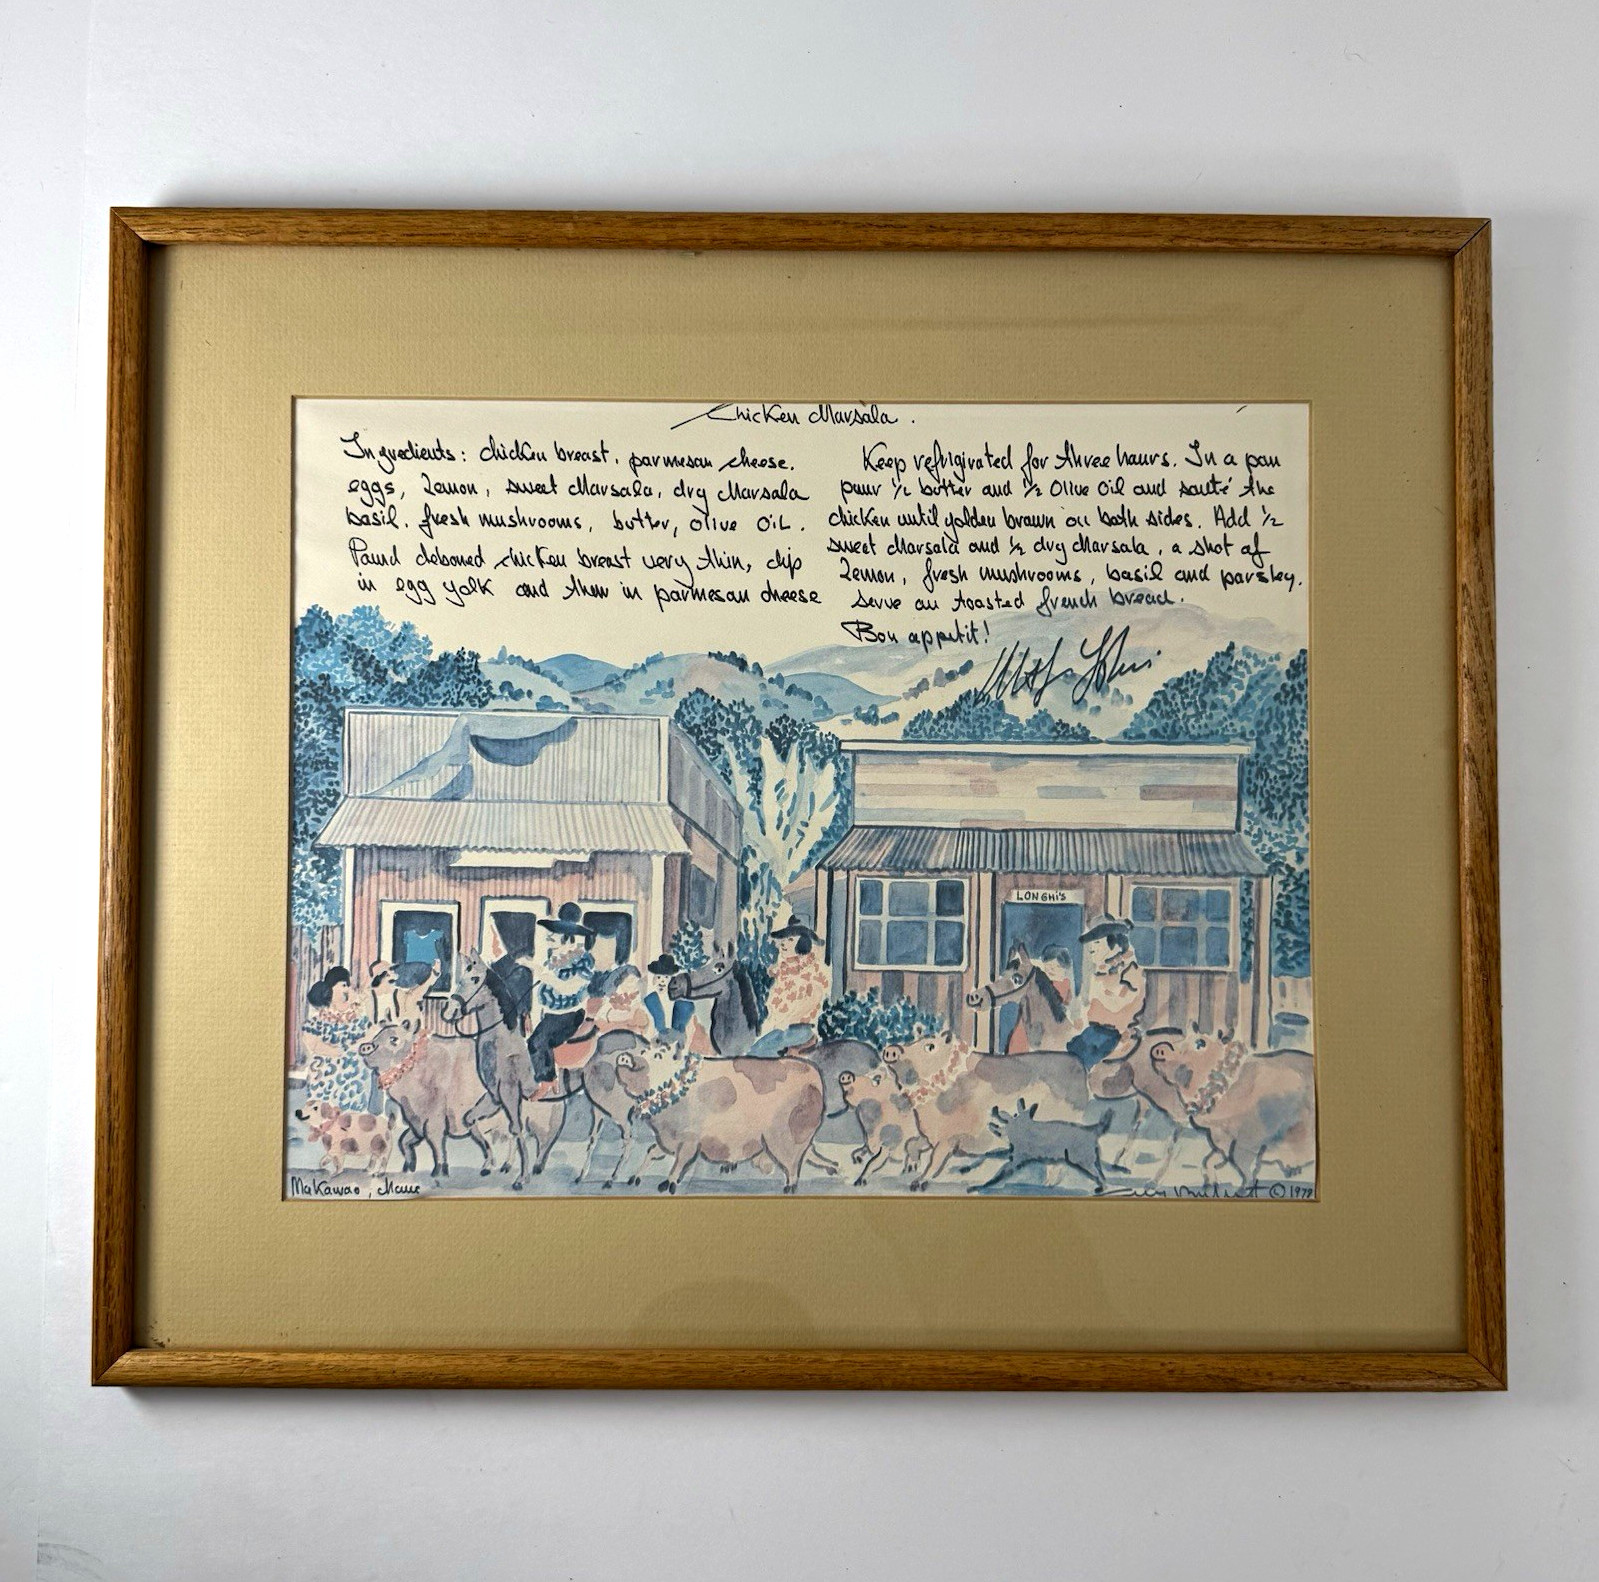 Chicken Marsala.
Ingredients: chicken breast, parmesan cheese.
eggs, Lemon, sweet Marsala, dry Marsala
basil. fresh mushrooms, butter, olive OiL.
Pound deboned chicken breast very thin, dip
in egg yolk and then in parmesan cheese
Keep refrigirated for three hours. In a pan
pour ½ butter and ½ Olive Oil and sauté the
chicken until golden brown on both sides. Add ½
sweet Marsala and ½ dry Marsala, a shot of
Lemon, fresh mushrooms, basil and parsley.
serve on toasted french bread.
Bon appetit!
LONGHI'S
Makawao, Maui
©